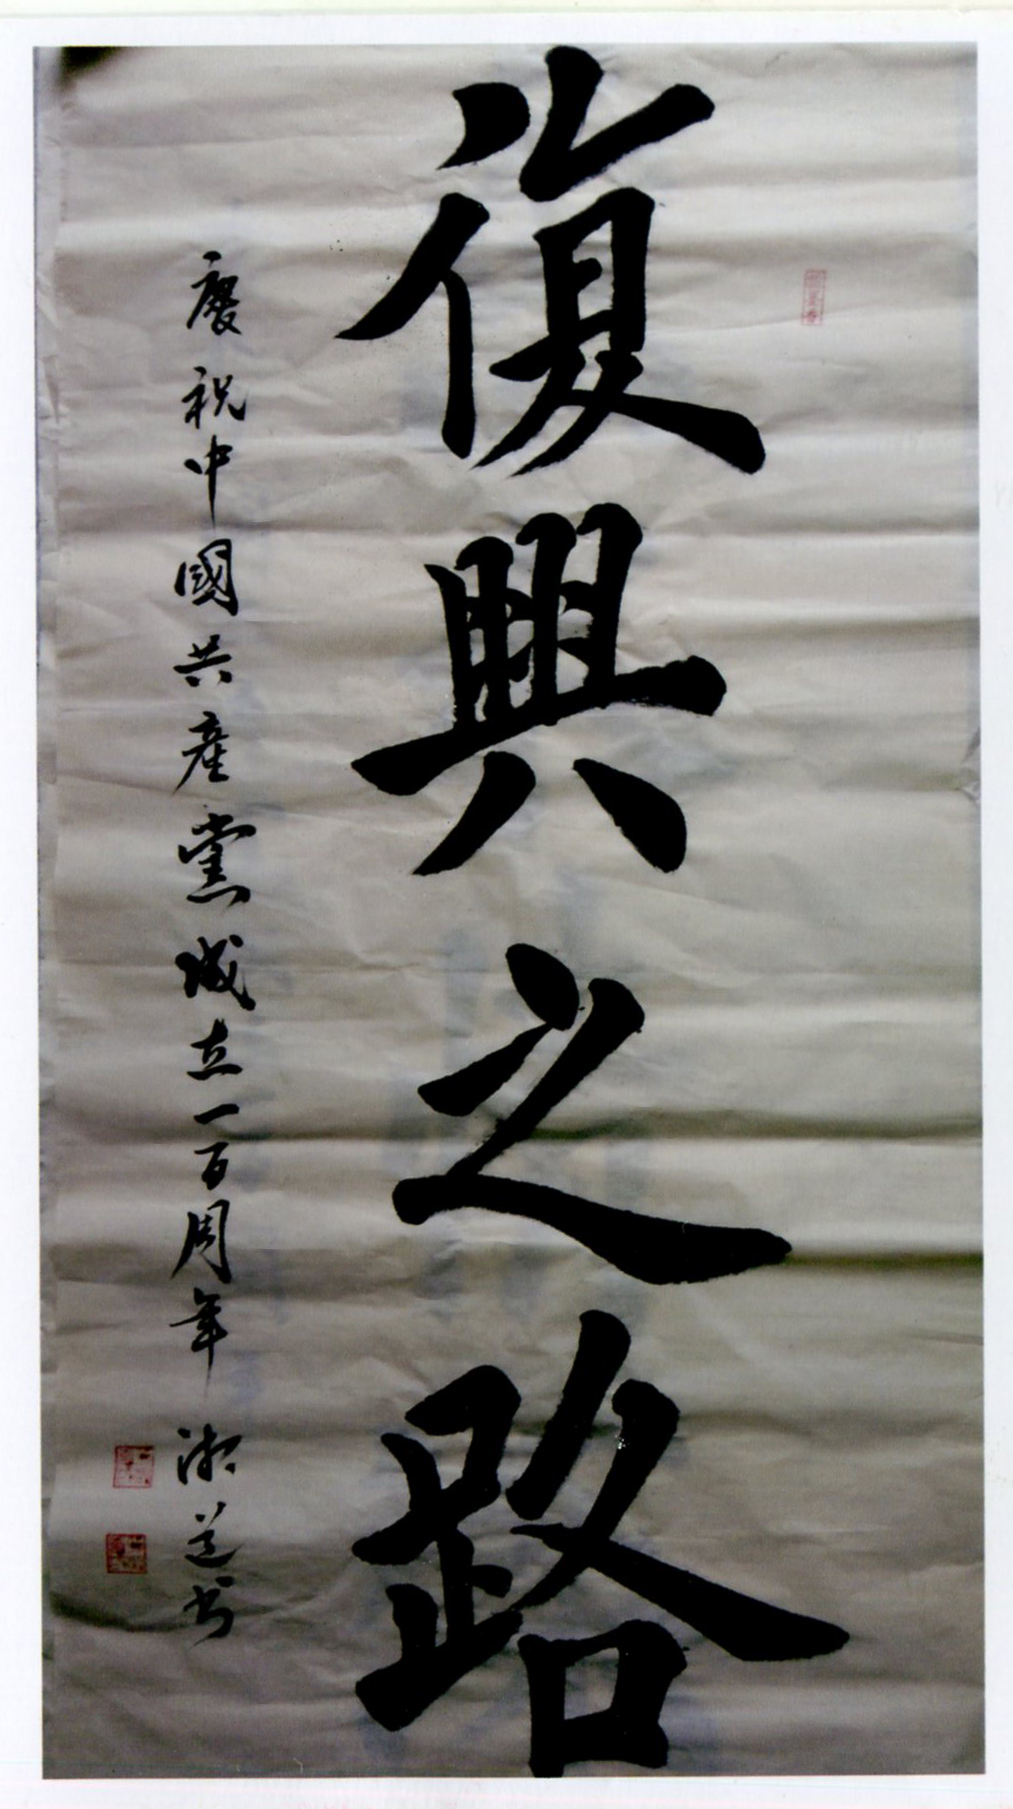 復興之路
慶祝中國共産黨成立一百周年 湘道书